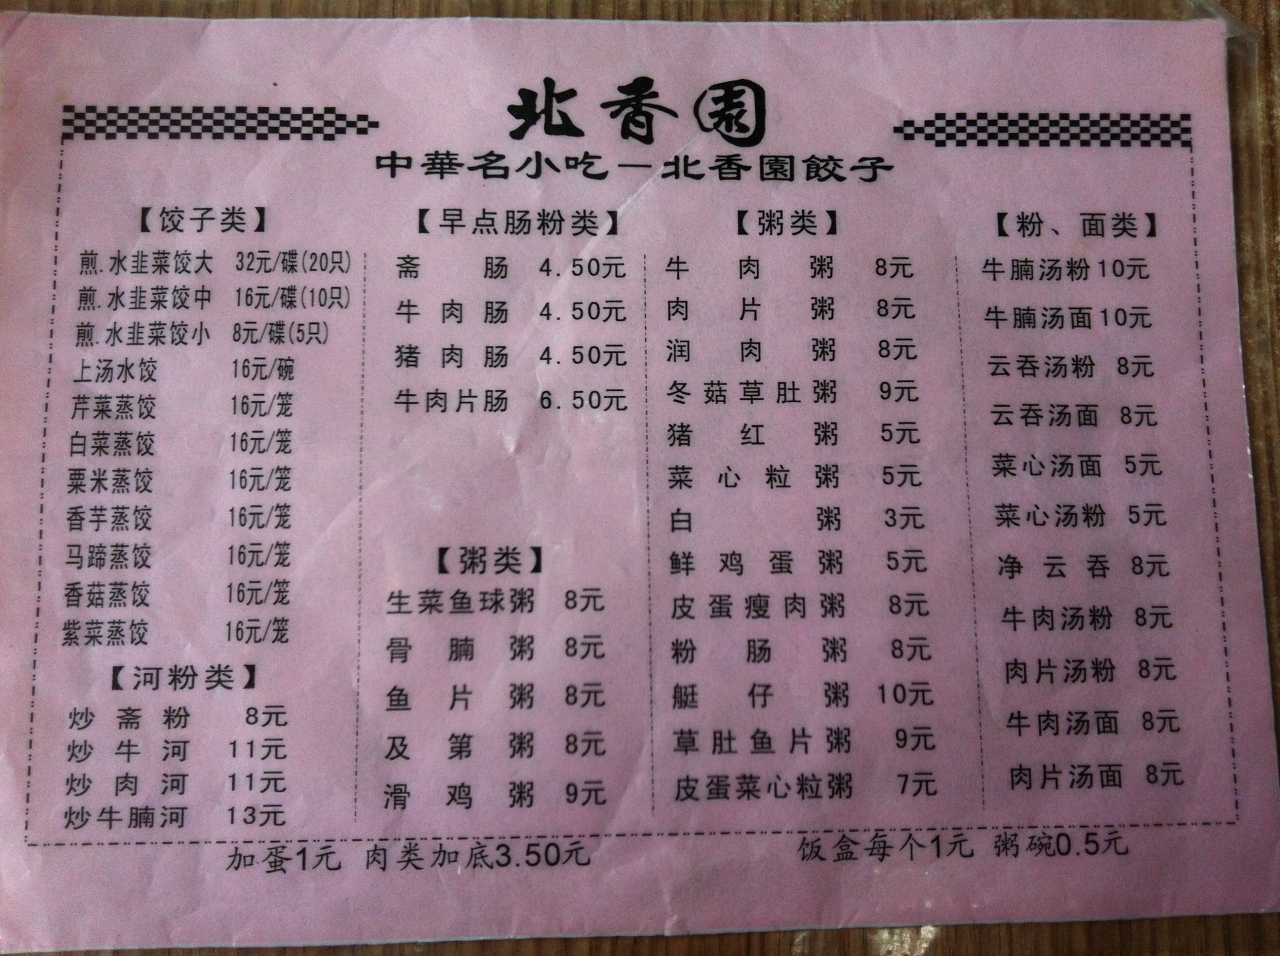 北香園
中華名小吃－北香園餃子
【饺子类】
煎.水韭菜饺大 32元/碟(20只)
煎.水韭菜饺中 16元/碟(10只)
煎.水韭菜饺小 8元/碟(5只)
上汤水饺 16元/碗
芹菜蒸饺 16元/笼
白菜蒸饺 16元/笼
粟米蒸饺 16元/笼
香芋蒸饺 16元/笼
马蹄蒸饺 16元/笼
香菇蒸饺 16元/笼
紫菜蒸饺 16元/笼
【河粉类】
炒斋粉 8元
炒牛河 11元
炒肉河 11元
炒牛腩河 13元
【早点肠粉类】
斋肠 4.50元
牛肉肠 4.50元
猪肉肠 4.50元
牛肉片肠 6.50元
【粥类】
生菜鱼球粥 8元
骨腩粥 8元
鱼片粥 8元
及第粥 8元
滑鸡粥 9元
【粥类】
牛肉粥 8元
肉片粥 8元
润肉粥 8元
冬菇草肚粥 9元
猪红粥 5元
菜心粒粥 5元
白粥 3元
鲜鸡蛋粥 5元
皮蛋瘦肉粥 8元
粉肠粥 8元
艇仔粥 10元
草肚鱼片粥 9元
皮蛋菜心粒粥 7元
【粉、面类】
牛腩汤粉 10元
牛腩汤面 10元
云吞汤粉 8元
云吞汤面 8元
菜心汤面 5元
菜心汤粉 5元
净云吞 8元
牛肉汤粉 8元
肉片汤粉 8元
牛肉汤面 8元
肉片汤面 8元
加蛋1元 肉类加底3.50元 饭盒每个1元 粥碗0.5元